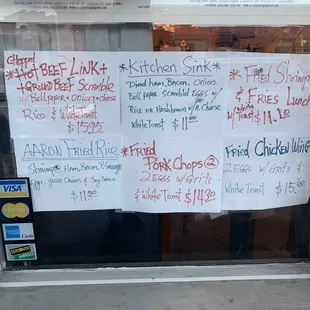 Chopped
*HOT BEEF LINK+
+GROUND BEEF Scramble
w/ Bellpepper + Onion + Cheese
Rice &
White Toast
$15.95
*Kitchen Sink*
Diced Ham, Bacon, Onion
Bellpepper Scrambled EGGS w/
Rice or Hashbrown w/ Cheese
White Toast $11.00
*Fried Shrimp
& FRIES Lunch
w/ Toast
AARON FRIED Rice
Shrimp, Ham, Bacon,
Eggs, green Onions & Soy Sauce
$11.00
*FRIED
PORK Chops ②
2 EGGS w/ Grits
& White Toast $14.50
Fried Chicken Wing
2 EGGS w/ Grits &
White Toast
VISA
MasterCard
DISCOVER